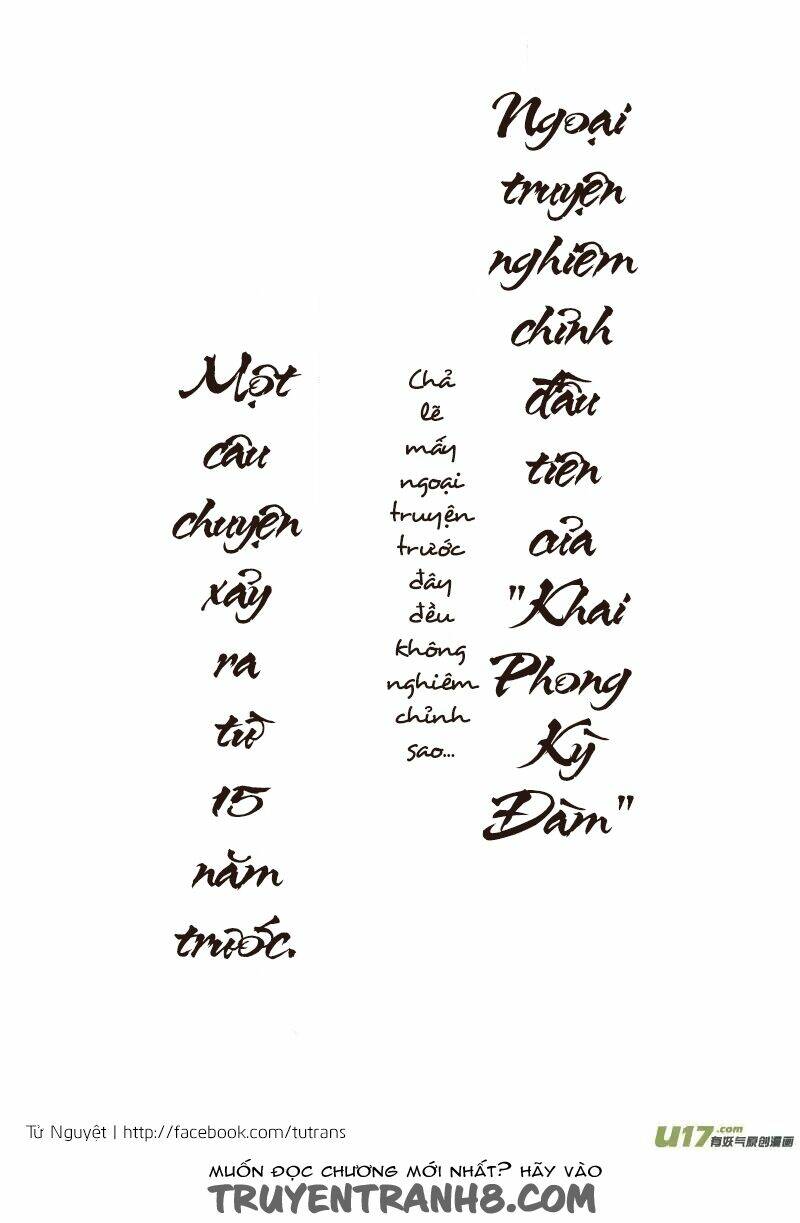 Ngoại
truyện
nghiêm
chỉnh
đầu
tiên
của
"Khai
Phong
Kỳ
Đàm"
Chả
lẽ
mấy
ngoại
truyện
trước
đây
đều
không
nghiêm
chỉnh
sao...
Một
câu
chuyện
xảy
ra
từ
15
năm
trước.
Tử Nguyệt | http://facebook.com/tutrans
U17.com
有妖气原创漫画
MUỐN ĐỌC CHƯƠNG MỚI NHẤT? HÃY VÀO
TRUYENTRANH8.COM